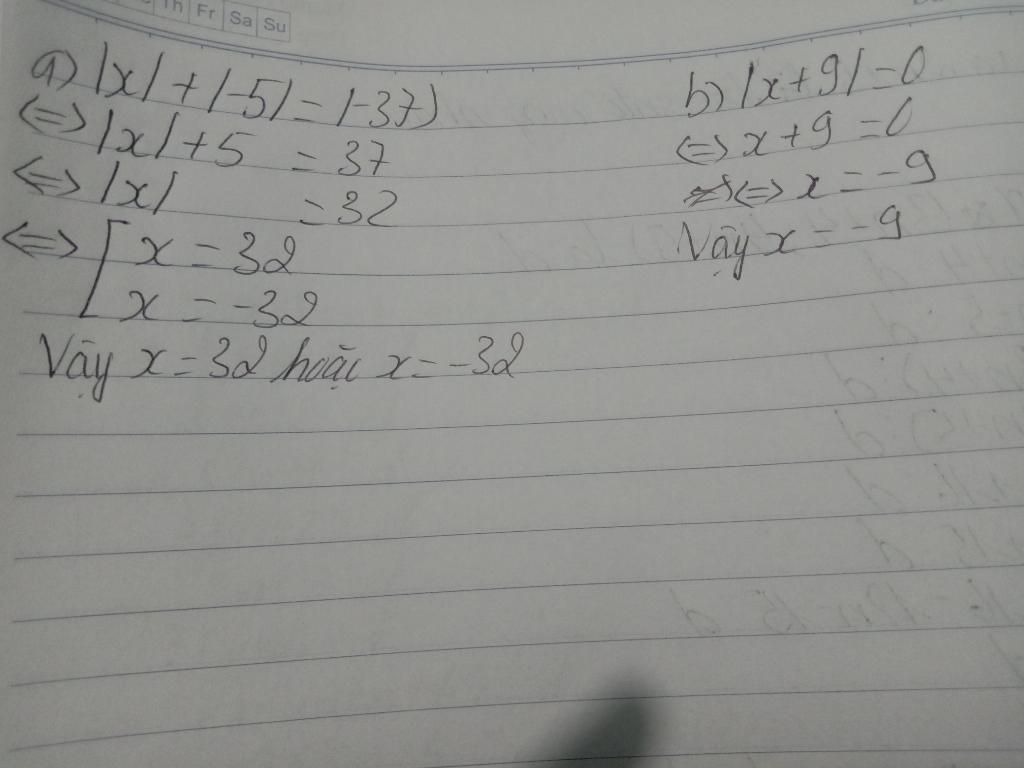 Th Fr Sa Su
a) |x| + |-5| = |-37|
<=> |x| + 5 = 37
<=> |x| = 32
<=> [ x = 32
x = -32
Vậy x = 32 hoặc x = -32
b) |x + 9| = 0
<=> x + 9 = 0
<=> x = -9
Vậy x = -9